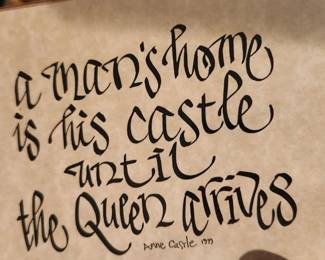 a man's home
is his castle
until
the Queen arrives
Anne Castle